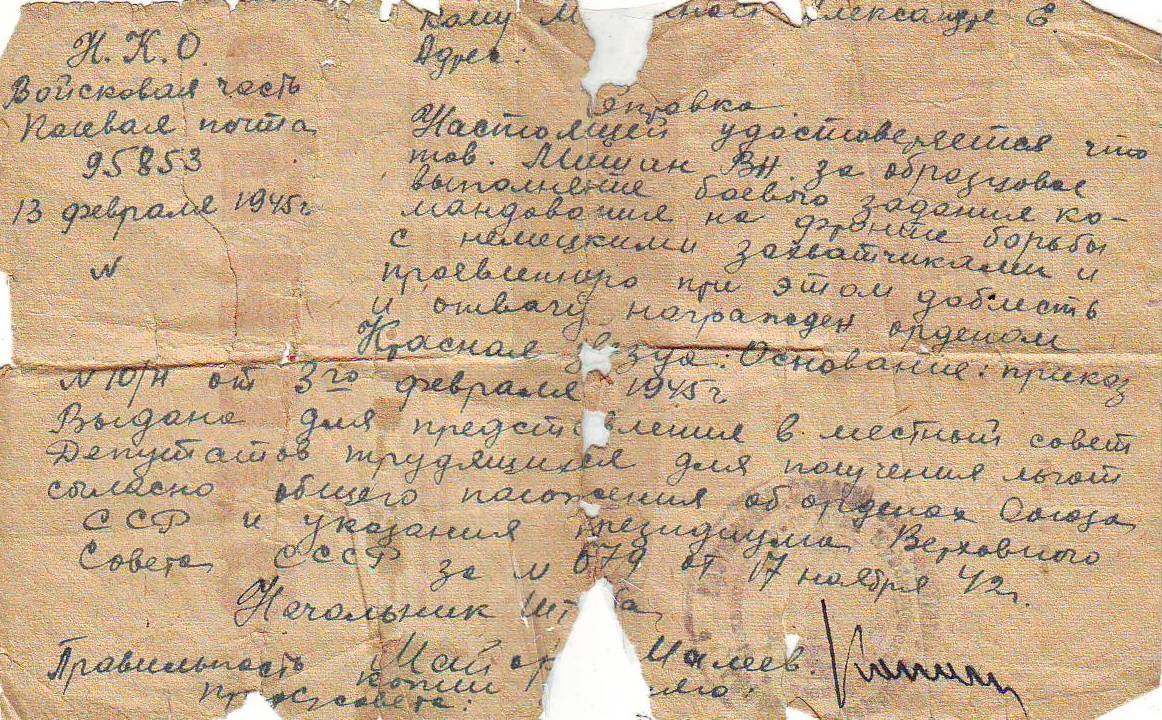 кому Александре Е.
Адрес:
Н.К.О.
Войсковая часть
Полевая почта
95853
13 февраля 1945г
N
Справка
Настоящей удостоверяется что
тов. Мишан ВН. за образцовое
выполнение боевого задания ко-
мандования на фронте борьбы
с немецкими захватчиками и
проевленную при этом доблесть
и отвагу награжден орденом
Красная звезда. Основание: приказ
N 10/Н от 3го февраля 1945г.
Выдана для представления в местный совет
Депутатов трудящихся для получения льгот
сыласно общего положения об орденах Союза
ССР и указания президиума Верховного
Совета СССР за N 679 от 17 ноября 42г.
Начальник штаба
Майор Малеев.
Правильность копии